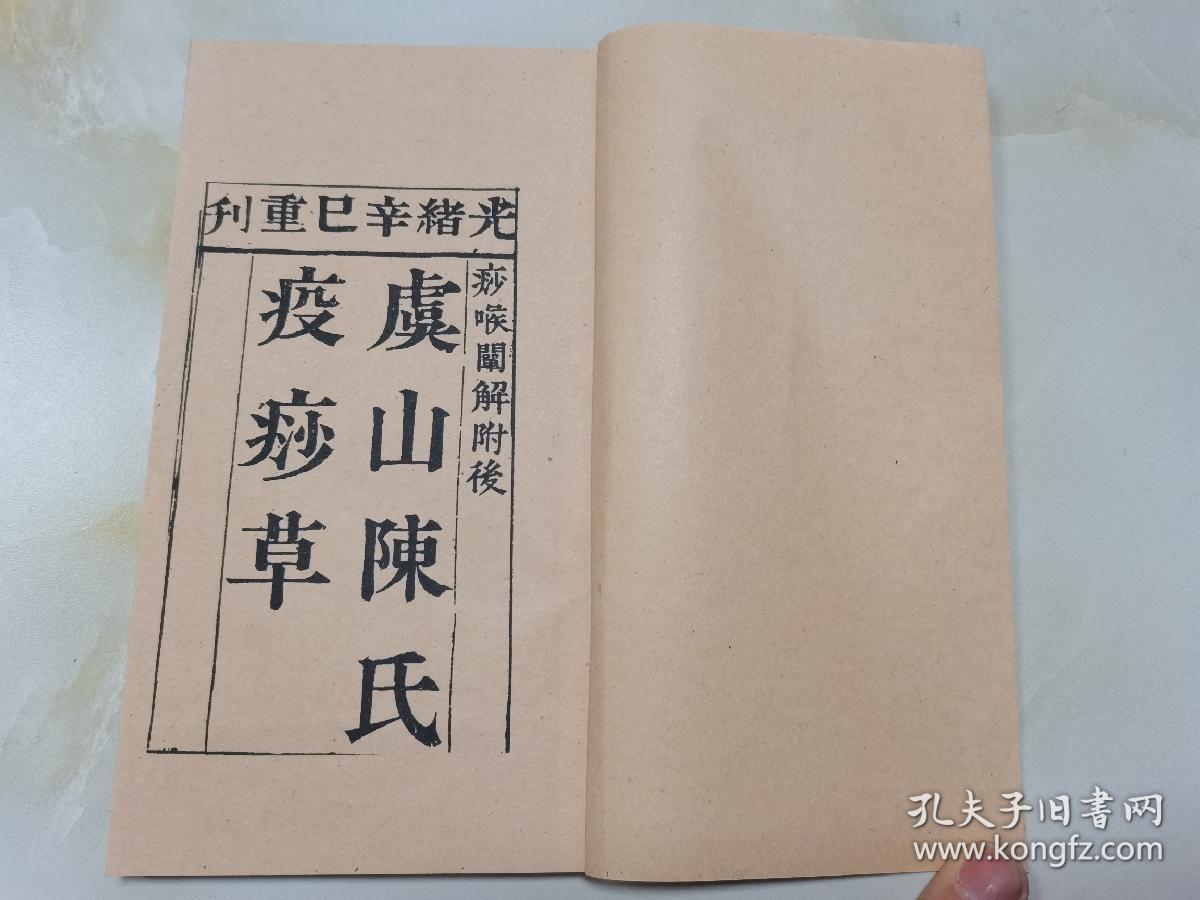 光緒辛巳重刊
痧喉闡解附後
虞山陳氏
疫痧草
孔夫子旧书网
www.kongfz.com